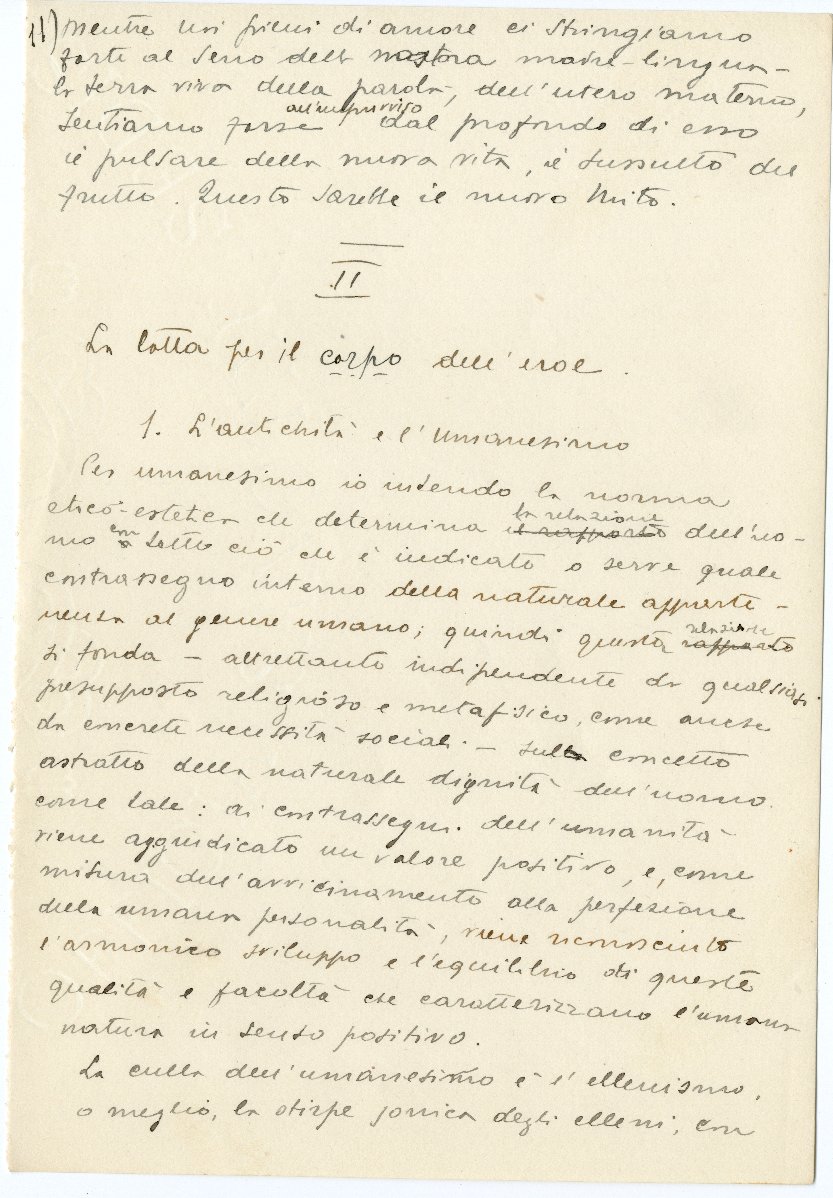 11) mentre noi pieni di amore ci stringiamo
forte al seno della nostra madre-lingua –
la terra viva della parola, dell'utero materno,
sentiamo forse all'improvviso dal profondo di esso
il pulsare della nuova vita, il sussulto del
frutto. Questo sarebbe il nuovo Mito.
II
La lotta per il corpo dell'eroe.
1. L'antichità e l'Umanesimo
Per umanesimo io intendo la norma
etico-estetica che determina il rapporto la relazione dell'uo-
mo con tutto ciò che è indicato o serve quale
contrassegno interno della naturale apparte-
nenza al genere umano; quindi questa rapporto relazione
si fonda – altrettanto indipendente da qualsiasi
presupposto religioso e metafisico, come anche
da concrete necessità sociali – sul concetto
astratto della naturale dignità dell'uomo
come tale: ai contrassegni dell'umanità
viene aggiudicato un valore positivo, e, come
misura dell'avvicinamento alla perfezione
della umana personalità, viene riconosciuto
l'armonico sviluppo e l'equilibrio di queste
qualità e facoltà che caratterizzano l'umana
natura in senso positivo.
La culla dell'umanesimo è l'ellenismo,
o meglio, la stirpe jonica degli elleni, con